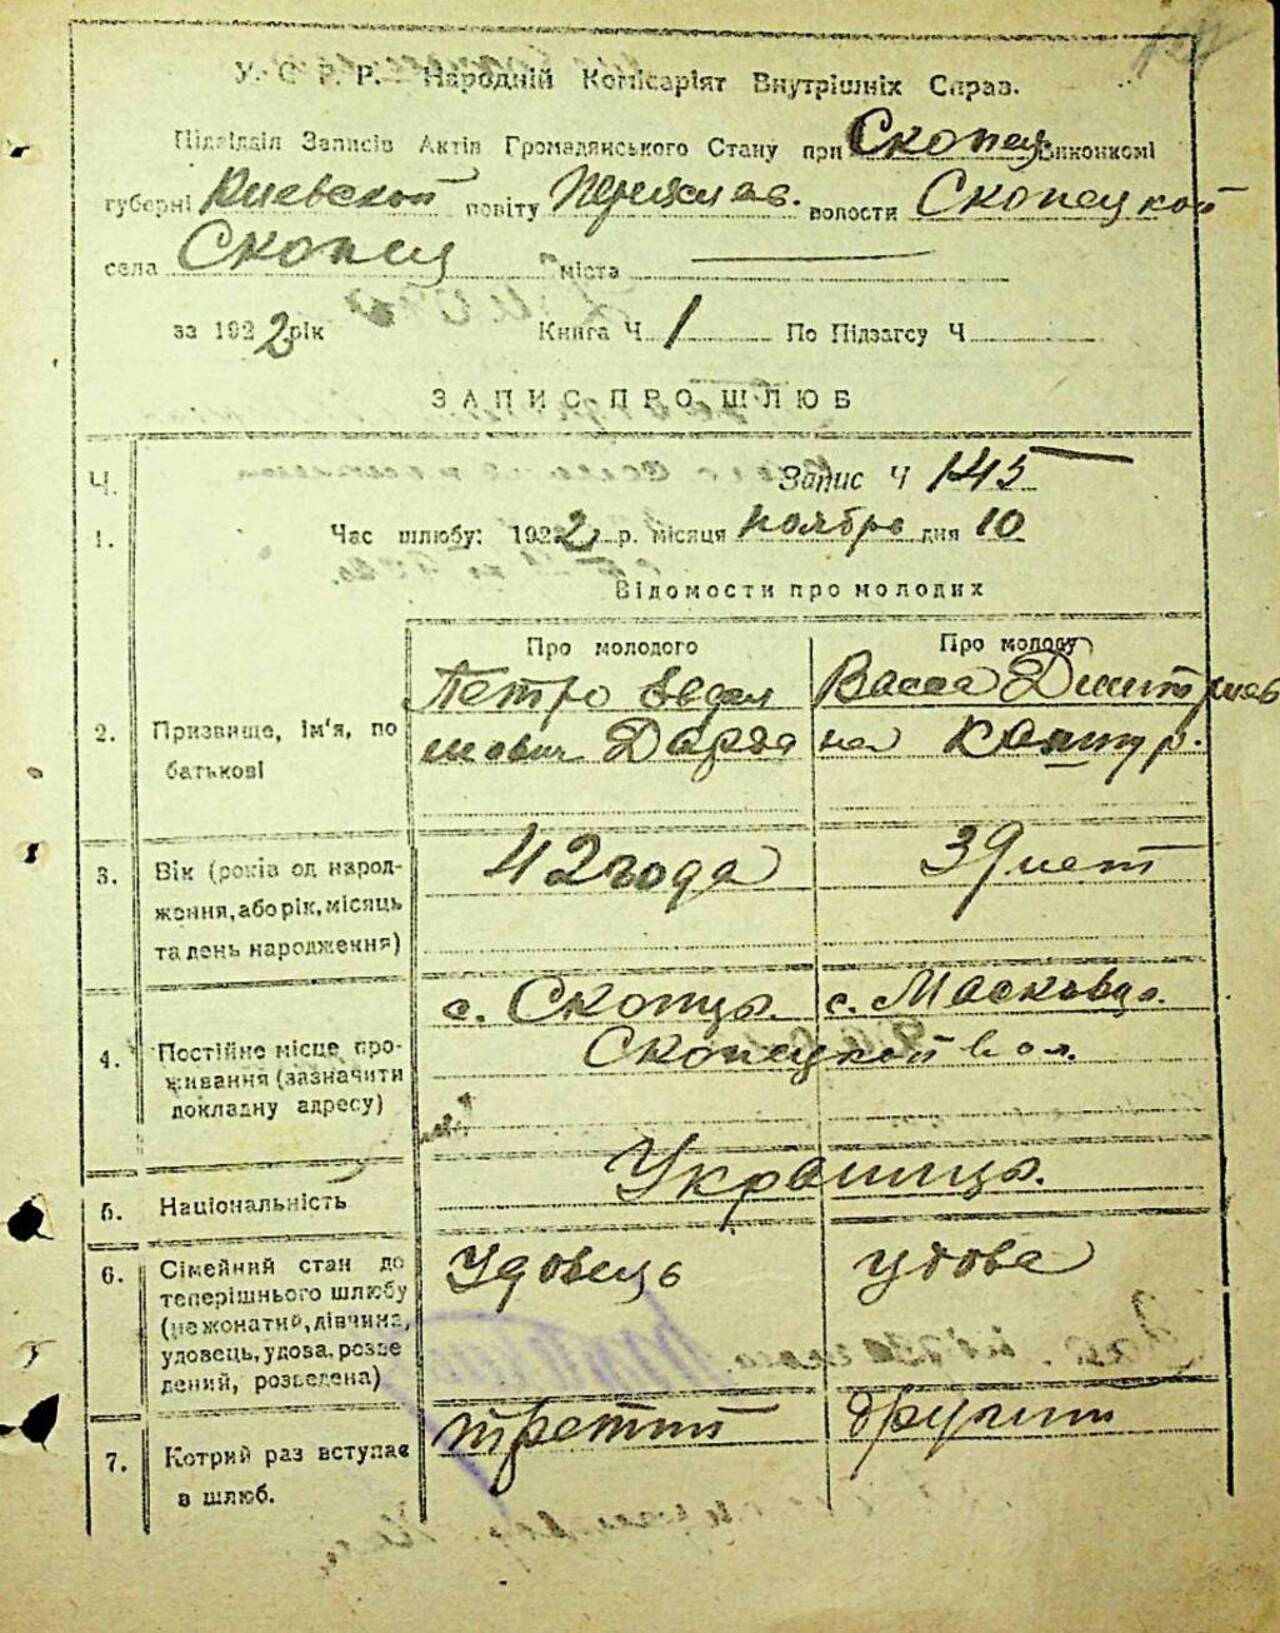 У. С. Р. Р. Народній Комісаріят Внутрішніх Справ.
Підвідділ Записів Актів Громадянського Стану при Скопец. Виконкомі
губерні Киевской повіту Переяслав. волости Скопецкой
села Скопец міста
за 1922 рік Книга Ч. 1 По Підзагсу Ч.
ЗАПИС ПРО ШЛЮБ
Ч. Запис Ч 145
1. Час шлюбу: 1922 р. місяця ноября дня 10
Відомости про молодих
Про молодого Про молоду
Петро Евдок Васса Дмитриев
имович Дарда на Коптур.
2. Призвище, ім'я, по
батькові
3. Вік (років од народ- 42 года 39 лет
ження, або рік, місяць
та день народження)
с. Скопцы. с. Масковцы.
4. Постійне місце про- Скопецкой вол.
живання (зазначити
докладну адресу)
5. Національність Украинцы.
6. Сімейний стан до Удовець удова
теперішнього шлюбу
(нежонатий, дівчина,
удовець, удова, розве
дений, розведена)
7. Котрий раз вступає третий другий
в шлюб.